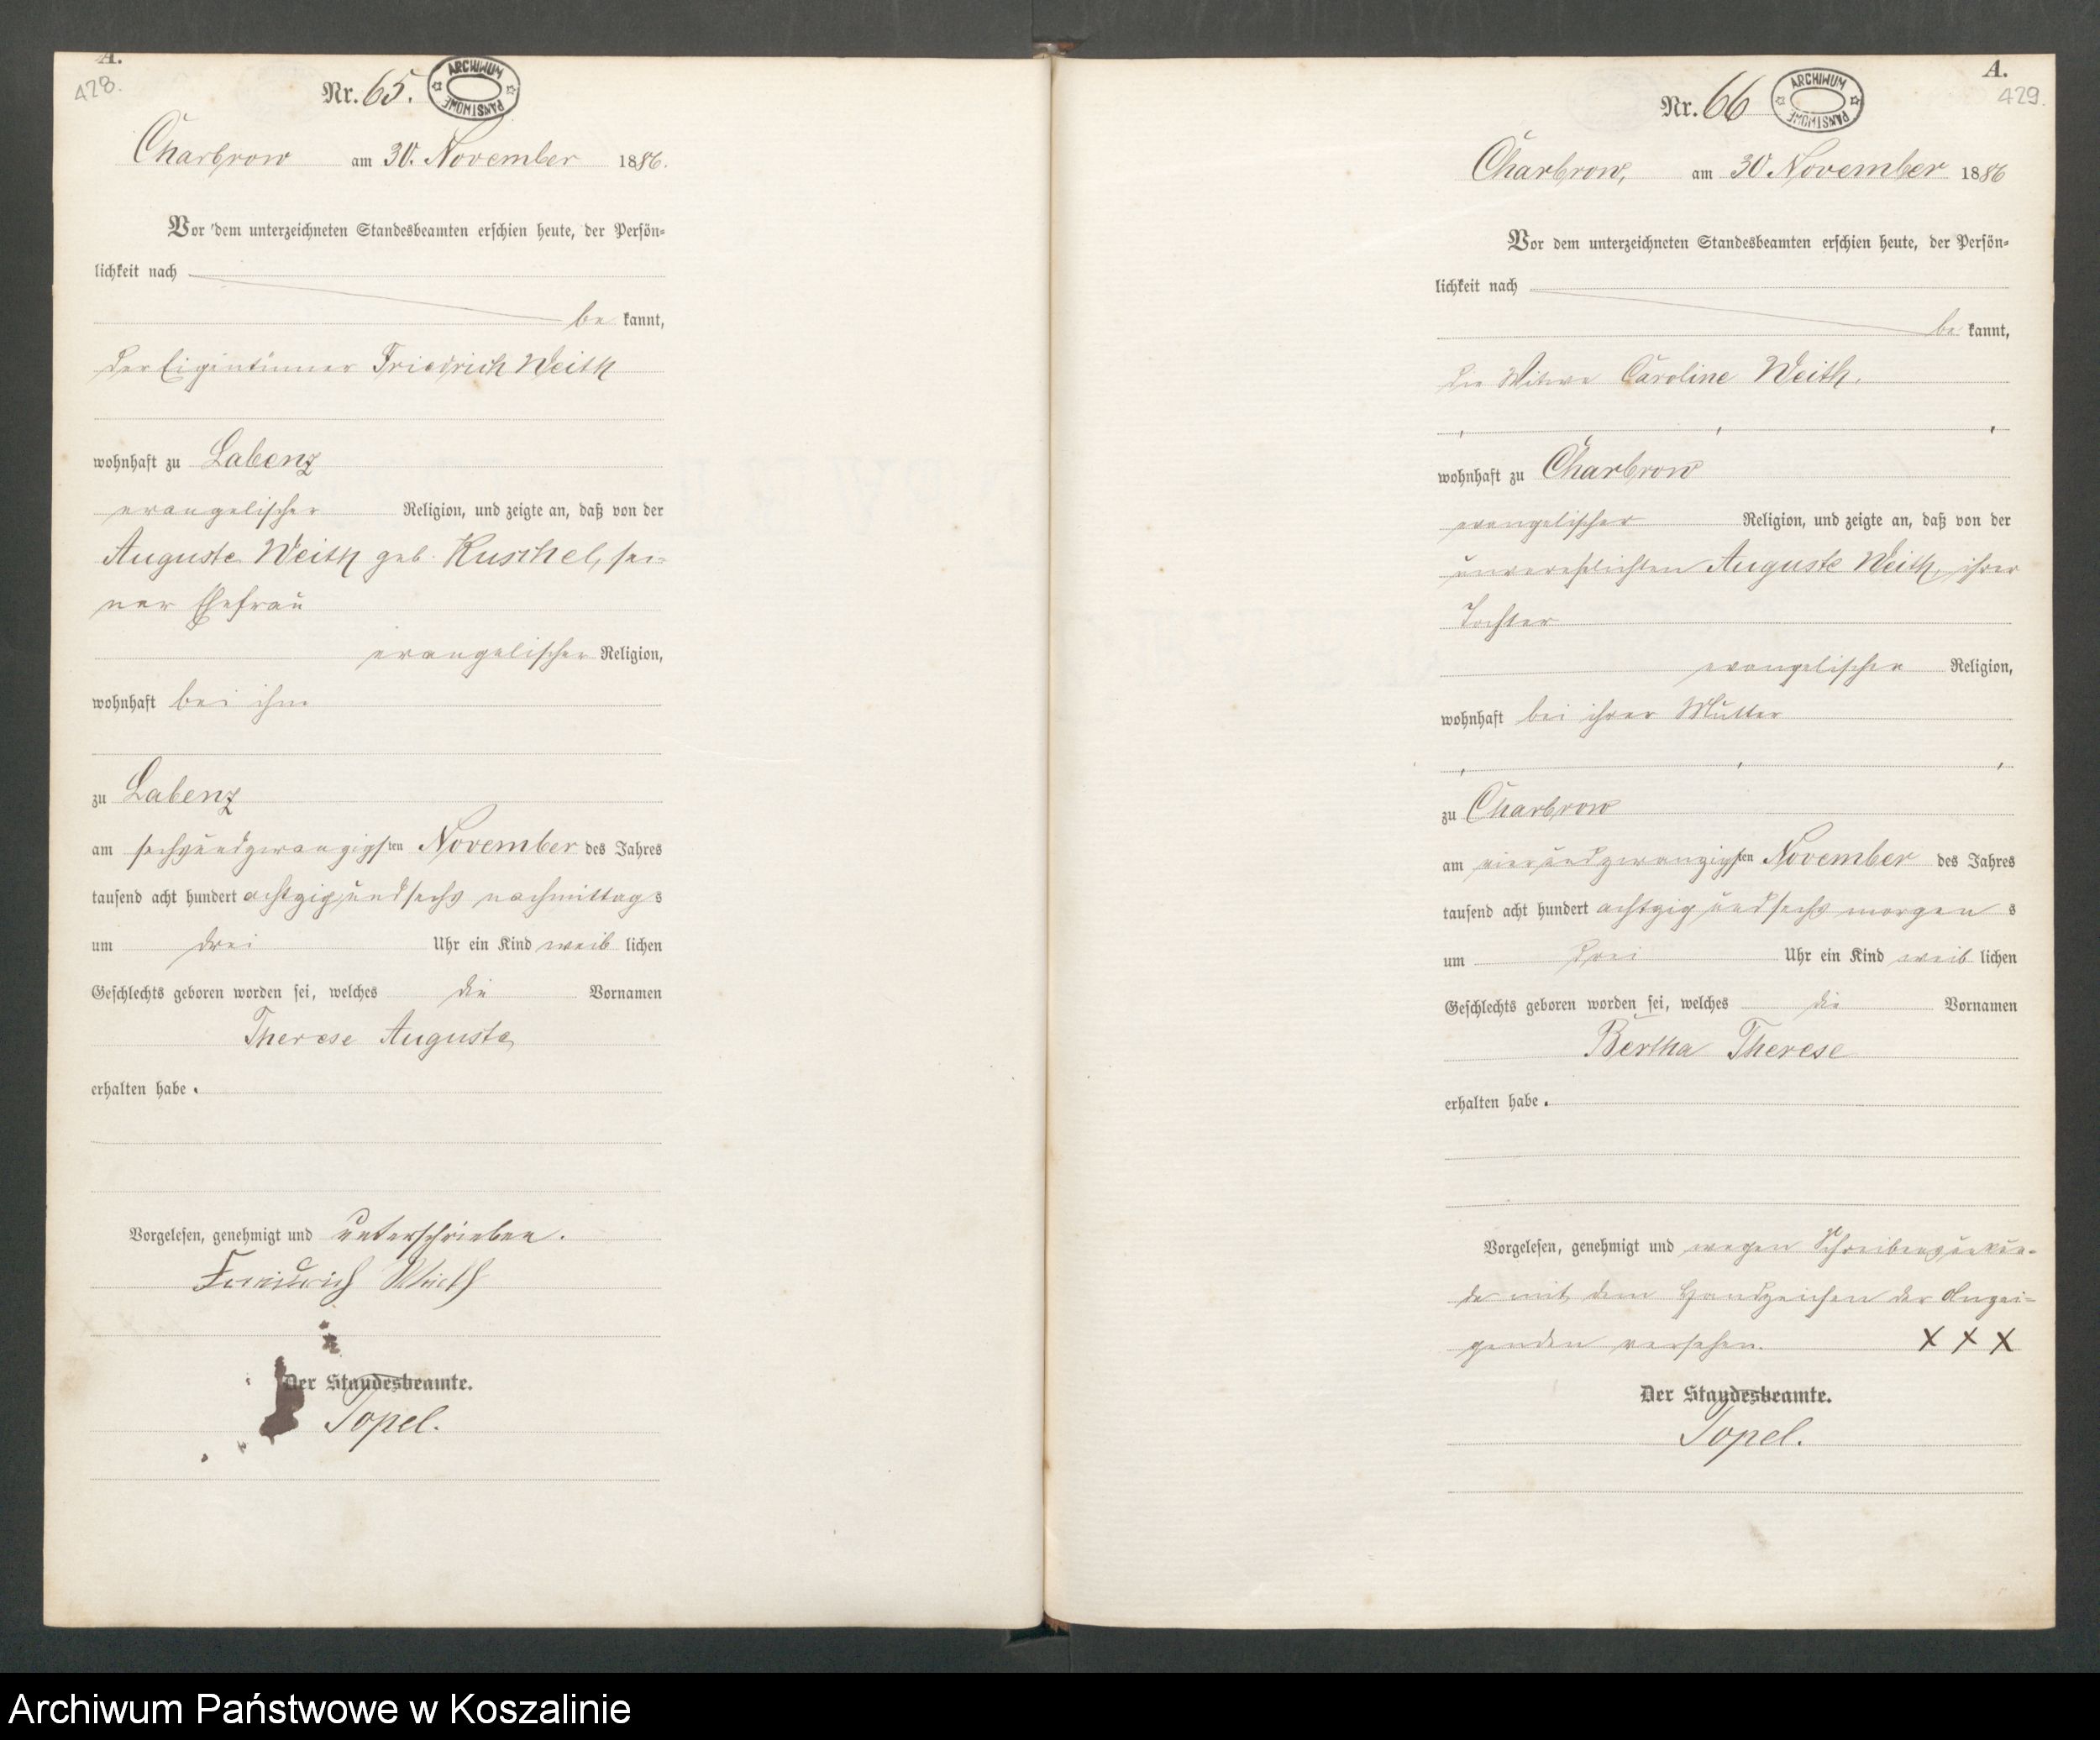 A.
428.
Nr. 65.
ARCHIWUM PAŃSTWOWE
Charbrow am 30. November 1886.
Vor dem unterzeichneten Standesbeamten erschien heute, der Persön-
lichkeit nach
be kannt,
der Eigentümer Friedrich Weith
wohnhaft zu Labenz
evangelischer Religion, und zeigte an, daß von der
Auguste Weith geb. Kuschel, sei-
ner Ehefrau
evangelischer Religion,
wohnhaft bei ihm
zu Labenz
am sechsundzwanzigsten November des Jahres
tausend acht hundert achtzig und sechs nachmittags
um drei Uhr ein Kind weib lichen
Geschlechts geboren worden sei, welches die Vornamen
Therese Auguste
erhalten habe.
Vorgelesen, genehmigt und unterschrieben.
Friedrich Weith
Der Standesbeamte.
Topel.
A.
429.
Nr. 66
ARCHIWUM PAŃSTWOWE
Charbrow, am 30 November 1886
Vor dem unterzeichneten Standesbeamten erschien heute, der Persön-
lichkeit nach
be kannt,
die Witwe Caroline Weith.
wohnhaft zu Charbrow
evangelischer Religion, und zeigte an, daß von der
unverehelichten Auguste Weith, ihrer
Tochter
evangelischer Religion,
wohnhaft bei ihrer Mutter
zu Charbrow
am vierundzwanzigsten November des Jahres
tausend acht hundert achtzig und sechs morgens
um drei Uhr ein Kind weib lichen
Geschlechts geboren worden sei, welches die Vornamen
Bertha Therese
erhalten habe.
Vorgelesen, genehmigt und wegen Schreibensunkun-
de mit dem Handzeichen der Anzei-
genden versehen. X X X
Der Standesbeamte.
Topel.
Archiwum Państwowe w Koszalinie